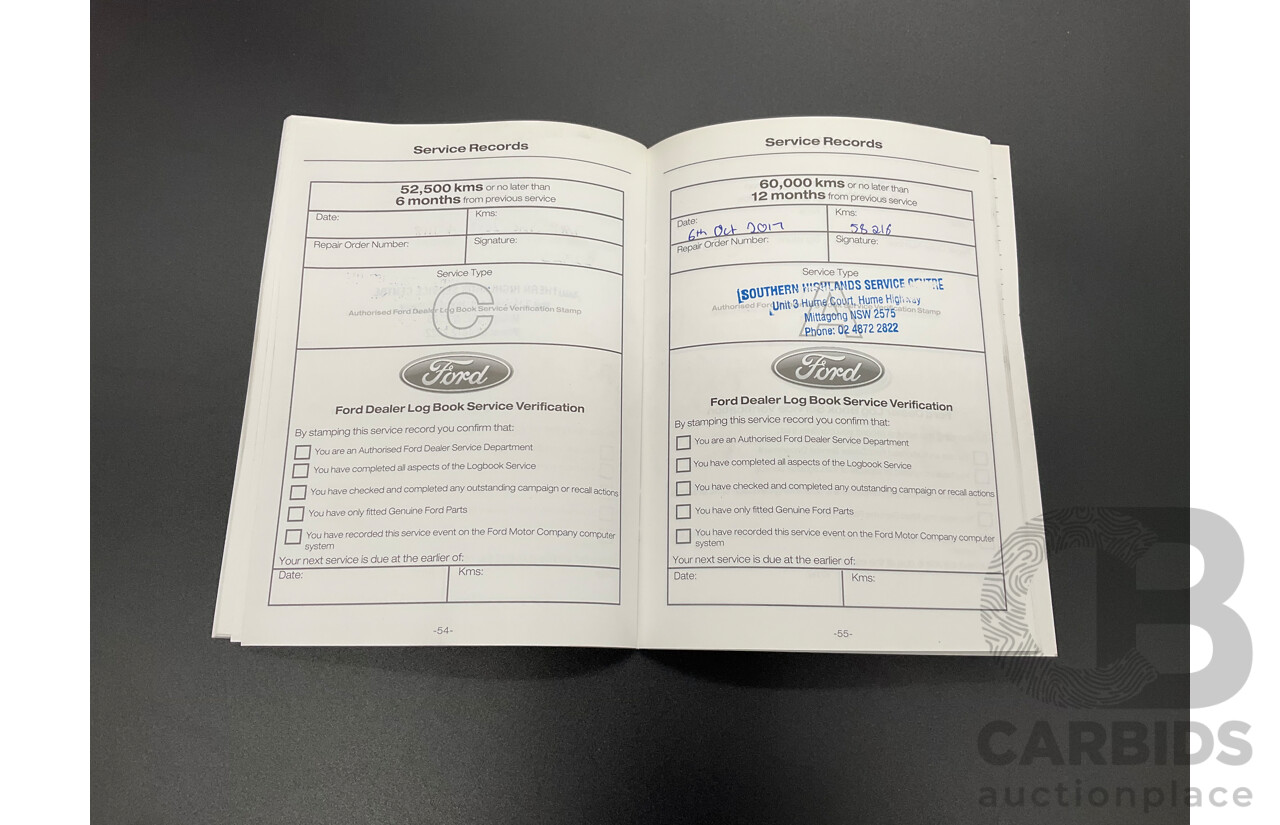 Service Records
52,500 kms or no later than
6 months from previous service
Date:
Kms:
Repair Order Number:
Signature:
Service Type
C
Authorised Ford Dealer Log Book Service Verification Stamp
Ford
Ford Dealer Log Book Service Verification
By stamping this service record you confirm that:
You are an Authorised Ford Dealer Service Department
You have completed all aspects of the Logbook Service
You have checked and completed any outstanding campaign or recall actions
You have only fitted Genuine Ford Parts
You have recorded this service event on the Ford Motor Company computer
system
Your next service is due at the earlier of:
Date:
Kms:
-54-
Service Records
60,000 kms or no later than
12 months from previous service
Date:
6th Oct 2017
Kms:
58 216
Repair Order Number:
Signature:
Service Type
A
SOUTHERN HIGHLANDS SERVICE CENTRE
Authorised Ford Service Verification Stamp
Unit 3 Hume Court, Hume Highway
Mittagong NSW 2575
Phone: 02 4872 2822
Ford
Ford Dealer Log Book Service Verification
By stamping this service record you confirm that:
You are an Authorised Ford Dealer Service Department
You have completed all aspects of the Logbook Service
You have checked and completed any outstanding campaign or recall actions
You have only fitted Genuine Ford Parts
You have recorded this service event on the Ford Motor Company computer
system
Your next service is due at the earlier of:
Date:
Kms:
-55-
CB
CARBIDS
auctionplace